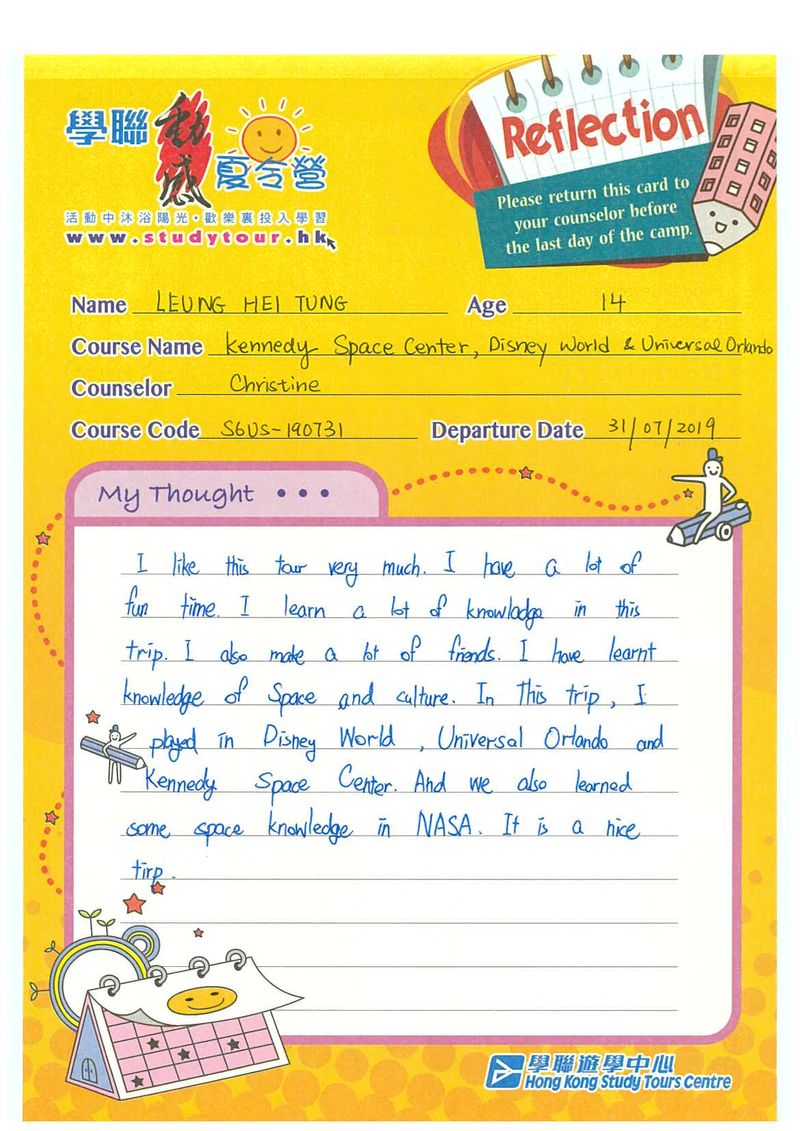 學聯動感夏令營
活動中沐浴陽光・歡樂裏投入學習
www.studytour.hk
Reflection
Please return this card to
your counselor before
the last day of the camp.
Name LEUNG HEI TUNG Age 14
Course Name Kennedy Space Center, Disney World & Universal Orlando
Counselor Christine
Course Code SGUS-190731 Departure Date 31/07/2019
My Thought • • •
I like this tour very much. I have a lot of
fun time. I learn a lot of knowladge in this
trip. I also make a lot of friends. I have learnt
knowledge of Space and culture. In This trip, I
played in Disney World , Universal Orlando and
Kennedy Space Center. And we also learned
some space knowledge in NASA. It is a nice
tirp.
學聯遊學中心
Hong Kong Study Tours Centre